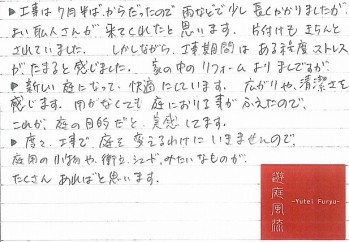 ▶工事は7月半ばからだったので雨などで少し長くかかりましたが、
よい職人さんが来てくれたと思います。片付けもきちんと
されていました。しかしながら、工事期間はある程度ストレス
がたまると感じました。家の中のリフォームよりましですが。
▶新しい庭になって快適にしています。広がりや、清潔さを
感じます。用がなくても庭におりる事がふえたので、
これが、庭の目的だと、実感してます。
▶度々、工事で庭を変えるわけにいきませんので、
庭用の小物や、衝立、シェード、みたいなものが、
たくさんあればと思います。
遊庭風流
-Yutei Furyu-